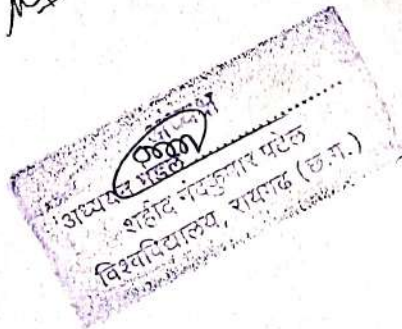 अध्यक्ष
अध्ययन मंडल ..............................
शहीद नंदकुमार पटेल
विश्वविद्यालय, रायगढ (छ.ग.)